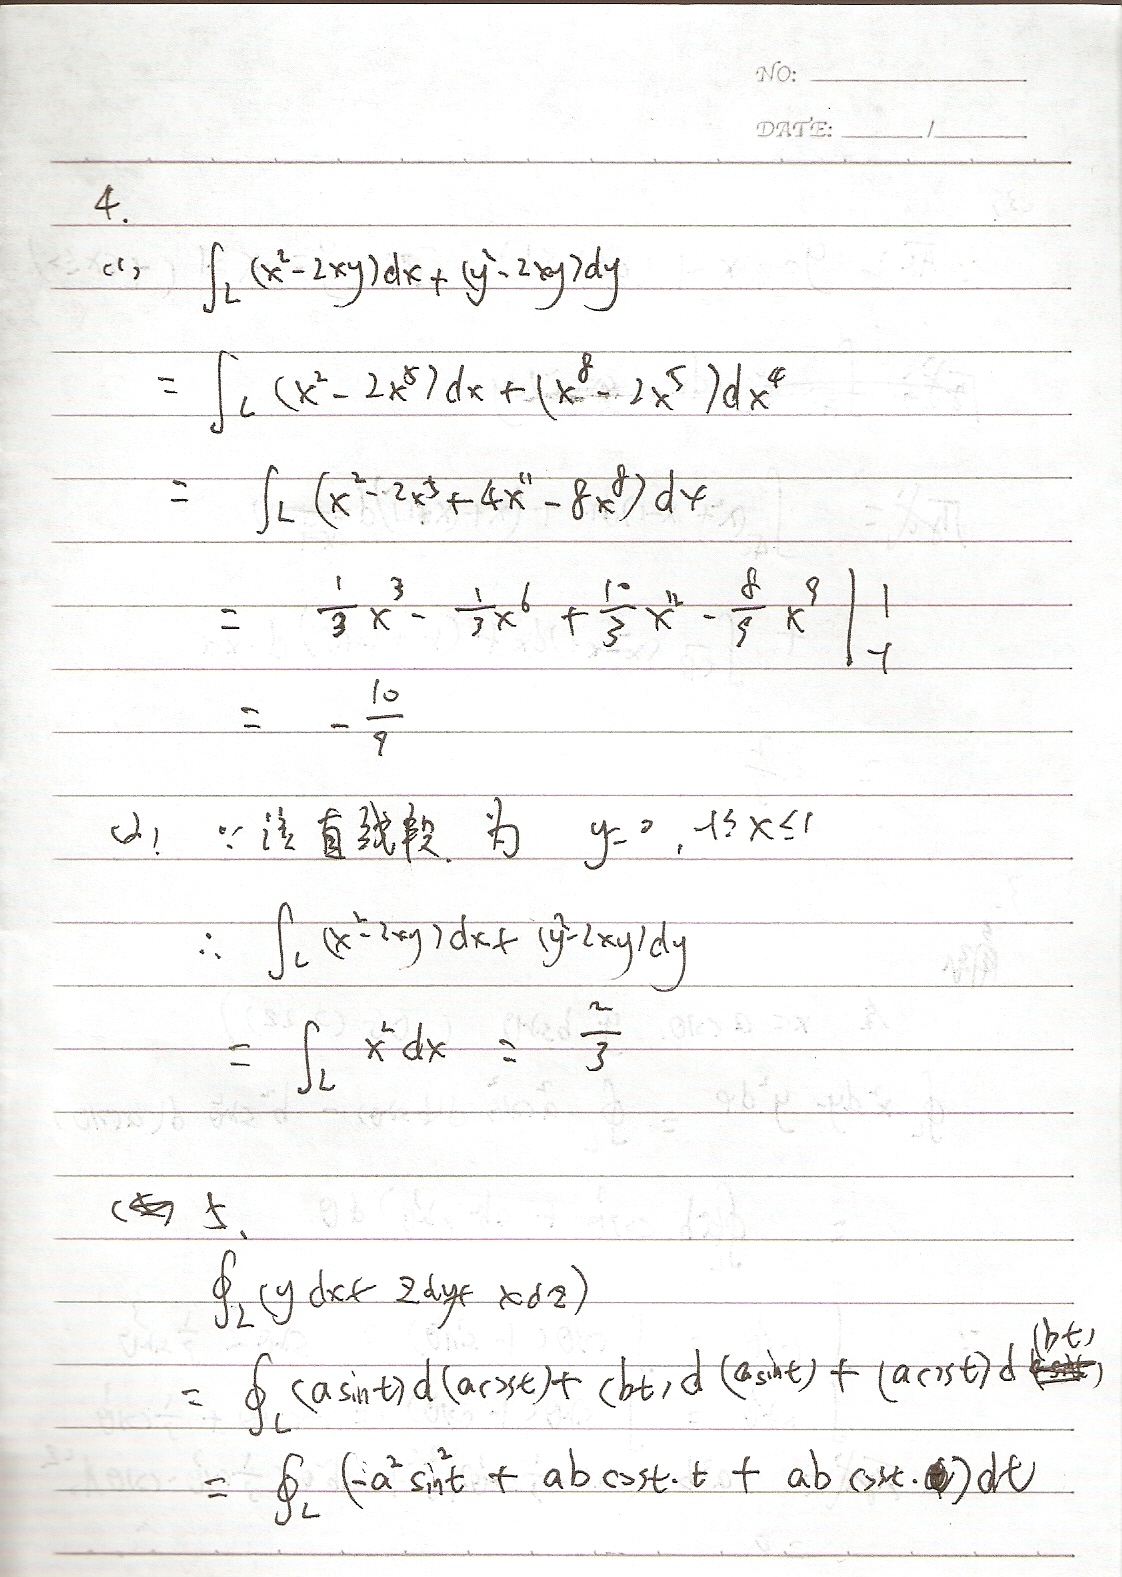 NO:
DATE: /
4.
(1) ∫_L (x²-2xy)dx+(y²-2xy)dy
= ∫_L (x²-2x⁵)dx+(x⁸-2x⁵)dx⁴
= ∫_L (x²-2x³+4x¹¹-8x⁸)dx
= 1/3 x³ - 1/3 x⁶ + 10/3 x¹² - 8/9 x⁹ |₋₁¹
= -10/9
(2) ∵该直线段为 y=0, -1≤x≤1
∴ ∫_L (x²-2xy)dx+(y²-2xy)dy
= ∫_L x²dx = 2/3
5.
∮_L (ydx+zdy+xdz)
= ∮_L (asint)d(acost)+(bt)d(asint)+(acost)d(bt)
= ∮_L (-a²sin²t+abcost·t+abcost·)dt